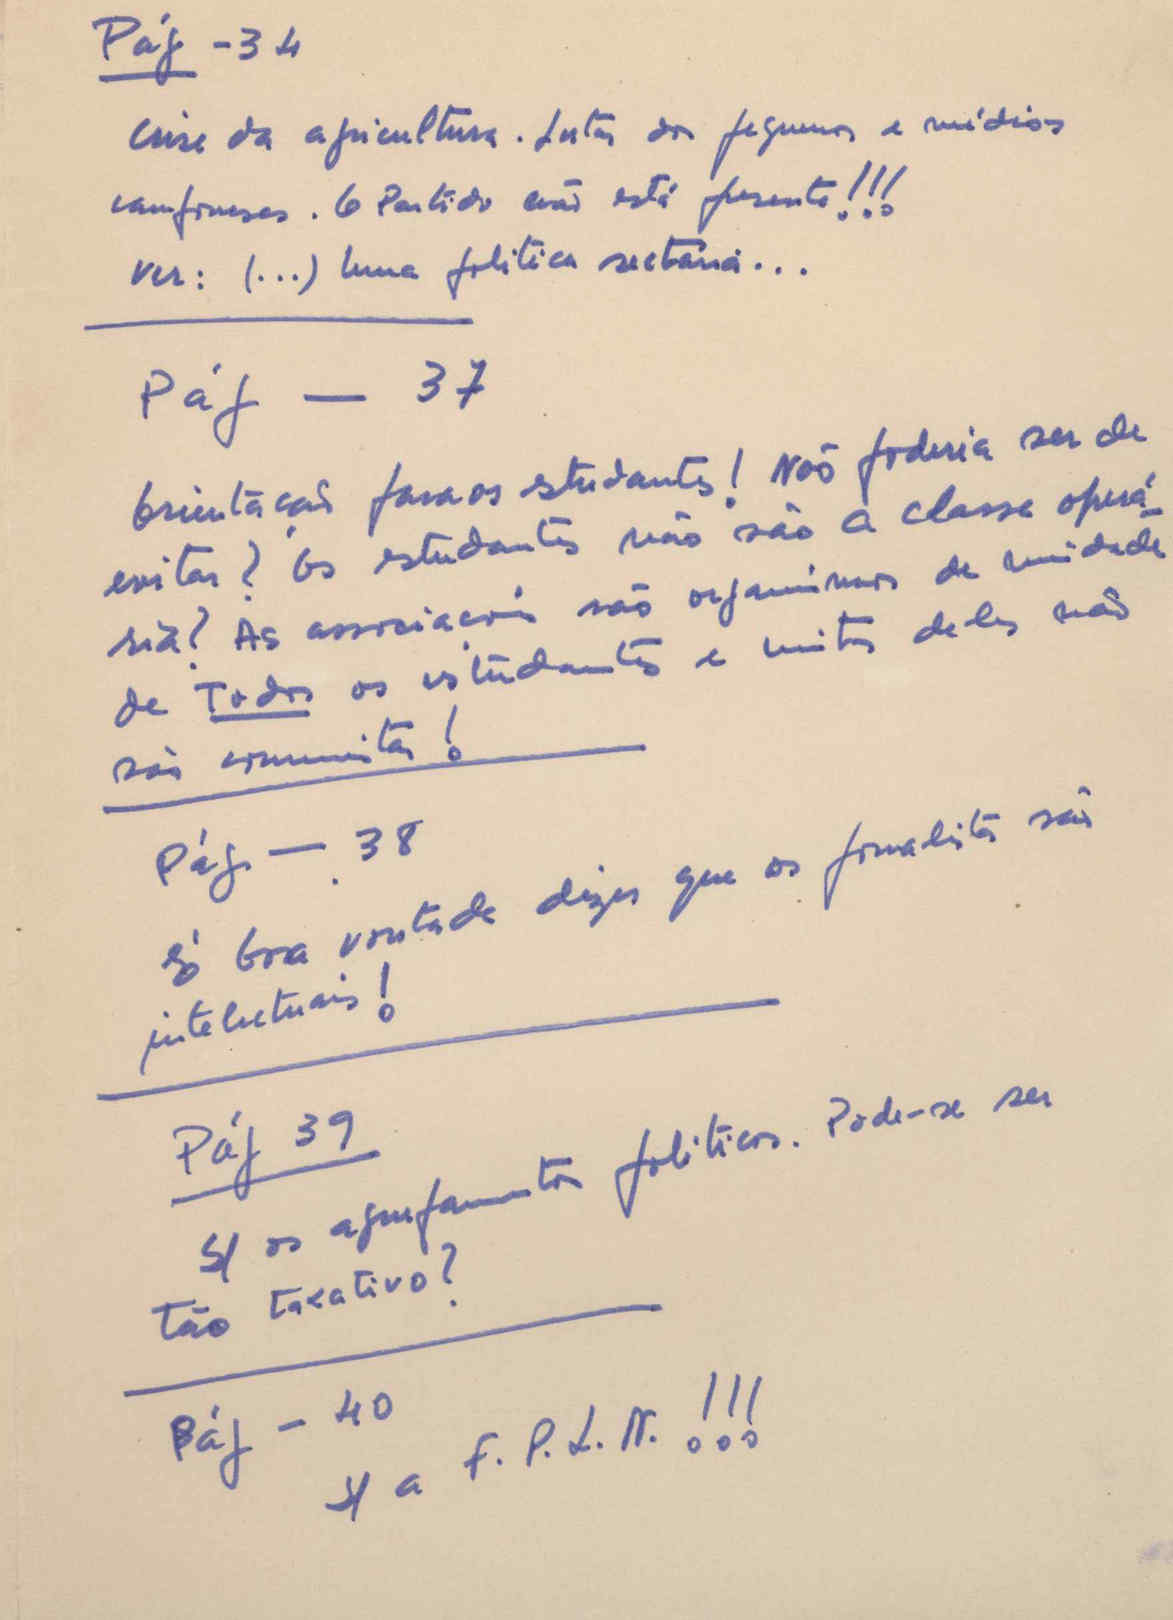 Pág - 34
Crise da agricultura. Lutas dos pequenos e médios
camponeses. O Partido não está presente!!!
Ver: (...) Numa política sectária...
Pág — 37
Orientação para os estudantes! Não poderia ser de
evitar? Os estudantes não são a classe operá-
ria? As associações são organismos de unidade
de Todos os estudantes e muitos deles não
são comunistas!
Pág. — 38
Só boa vontade dizer que os jornalistas são
intelectuais!
Pág 39
S/ os agrupamentos políticos. Pode-se ser
tão taxativo?
Pág - 40
S/ a F. P. L. N. !!!